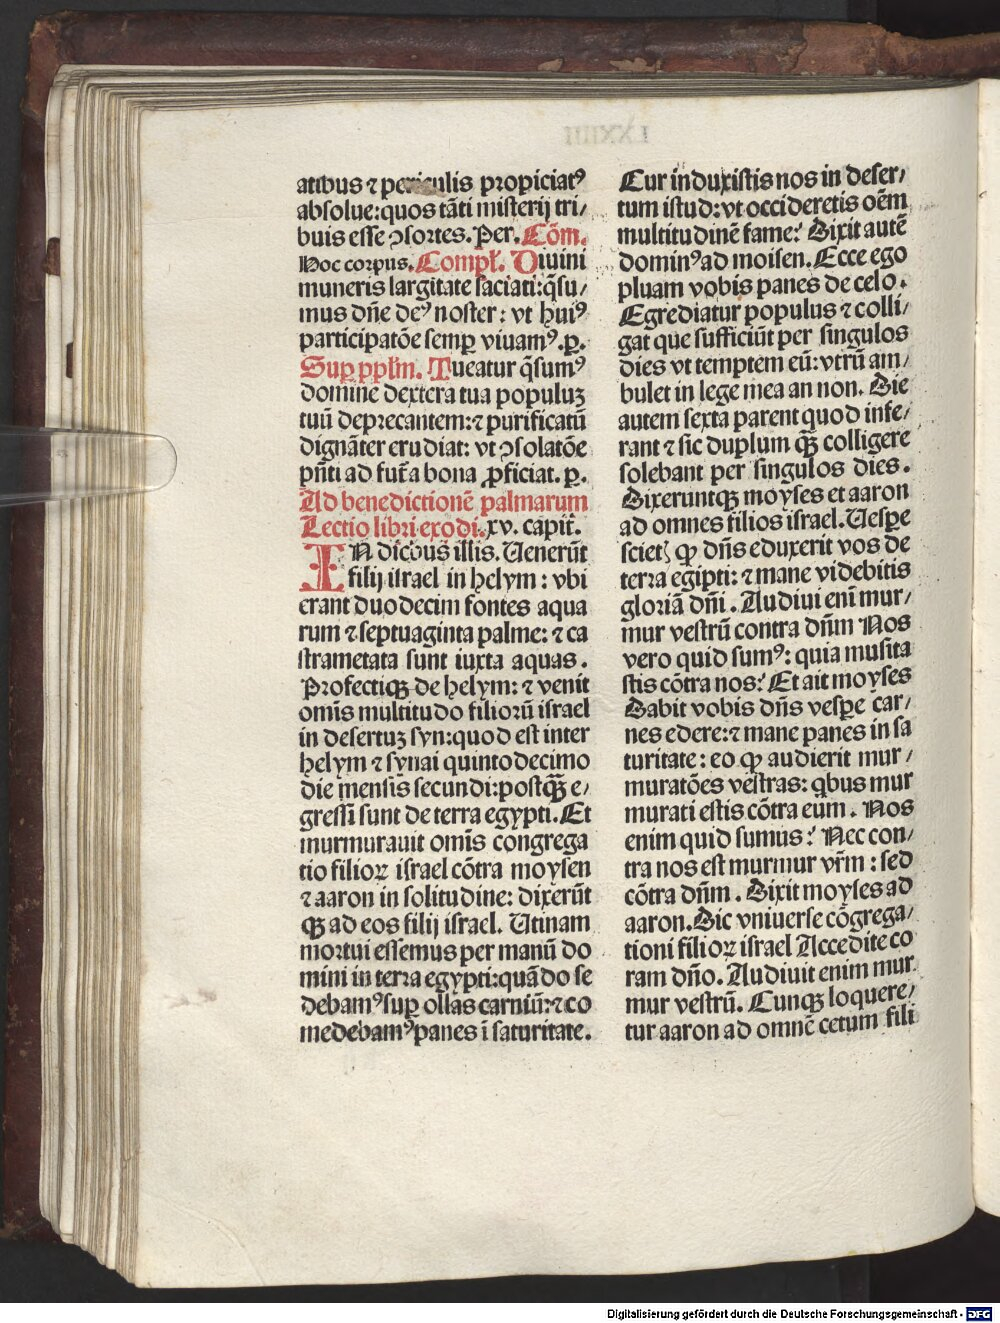 atibus ⁊ periculis propiciatꝰ
absolue:quos tāti misterij tri/
buis esse ꝯsortes. Per. Cōm.
Hoc corpus. Compł. Diuini
muneris largitate saciati:q̄su/
mus dn̄e deꝰ noster : vt huiꝰ
participatōe semꝑ viuamꝰ.ꝑ.
Suꝑ pplm̄. Tueatur q̄sumꝰ
domine dextera tua populuꝫ
tuū deprecantem:⁊ purificatū
dignāter erudiat: vt ꝯsolatōe
pn̄ti ad fut̄a bona ꝓficiat. ꝑ.
Ad benedictionē palmarum
Lectio libri exodi. xv. capit̄.
IN diebus illis. Uenerūt
filij israel in helym : vbi
erant duodecim fontes aqua
rum ⁊ septuaginta palme: ⁊ ca
strametata sunt iuxta aquas .
Profectiqꝫ de helym: ⁊ venit
omīs multitudo filiorū israel
in desertuꝫ syn:quod est inter
helym ⁊ synai quintodecimo
die mensis secundi:postqꝫ̄ e/
gressi sunt de terra egypti. Et
murmurauit omīs congrega
tio filioꝝ israel cōtra moysen
⁊ aaron in solitudine: dixerūt
qꝫ ad eos filij israel. Utinam
mortui essemus per manū do
mini in terra egypti:quādo se
debamꝰ suꝑ ollas carniū:⁊ co
medebamꝰ panes ī saturitate.
Cur induxistis nos in deser/
tum istud: vt occideretis oēm
multitudinē fame? Dixit autē
dominꝰ ad moisen. Ecce ego
pluam vobis panes de celo .
Egrediatur populus ⁊ colli/
gat que sufficiūt per singulos
dies vt temptem eū: vtrū am/
bulet in lege mea an non. Die
autem sexta parent quod infe/
rant ⁊ sic duplum qꝫ̄ colligere
solebant per singulos dies .
Dixeruntqꝫ moyses et aaron
ad omnes filios israel. Uesꝑe
scietꝭ ꝙ dn̄s eduxerit vos de
terra egipti: ⁊ mane videbitis
gloriā dn̄i . Audiui enī mur/
mur vestrū contra dn̄m Nos
vero quid sumꝰ: quia musita
stis cōtra nos? Et ait moyses
Dabit vobis dn̄s vesꝑe car/
nes edere:⁊ mane panes in sa
turitate : eo ꝙ audierit mur/
muratōes vestras: qbus mur
murati estis cōtra eum . Nos
enim quid sumus? Nec con/
tra nos est murmur vr̄m : sed
cōtra dn̄m . Dixit moyses ad
aaron. Dic vniuerse cōgrega/
tioni filioꝝ israel Accedite co
ram dn̄o. Audiuit enim mur
mur vestrū. Cunqꝫ loquere/
tur aaron ad omnē cetum fili
Digitalisierung gefördert durch die Deutsche Forschungsgemeinschaft - DFG